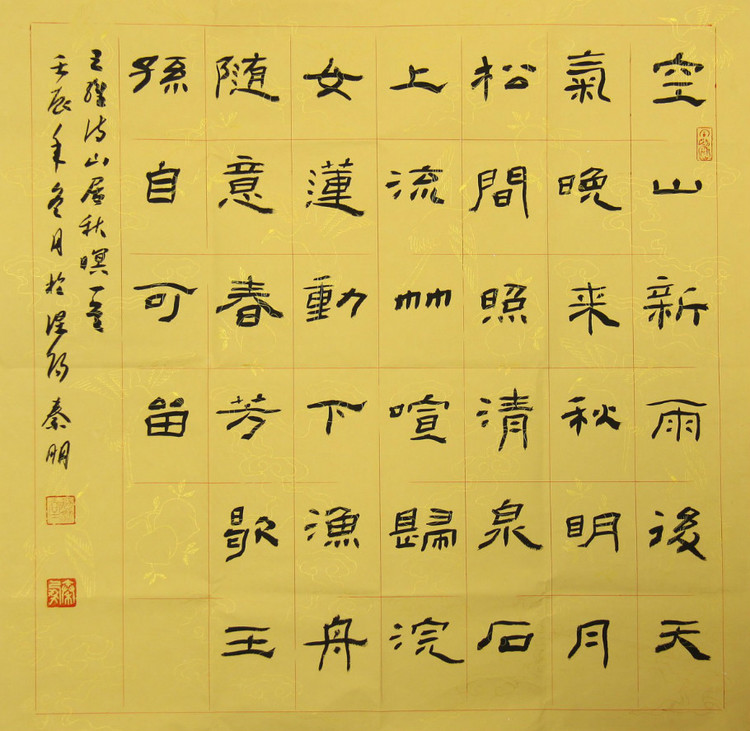 空山新雨後天
氣晚来秋明月
松間照清泉石
上流竹喧歸浣
女蓮動下漁舟
随意春芳歇王
孫自可留
王維诗山居秋暝一首
壬辰年冬月於 阳秦明